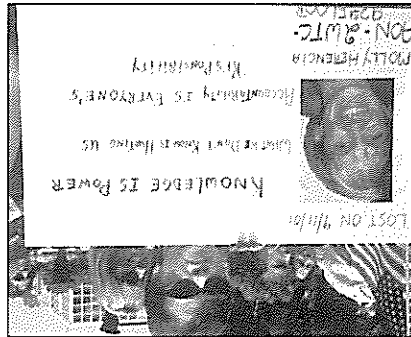 LOST ON 9/11/01
KNOWLEDGE IS POWER
WHAT WE DON'T KNOW IS HURTING US
ACCOUNTABILITY IS EVERYONE'S
RESPONSIBILITY
MOLLY HERENCIA
AON-2WTC-
FLOOR